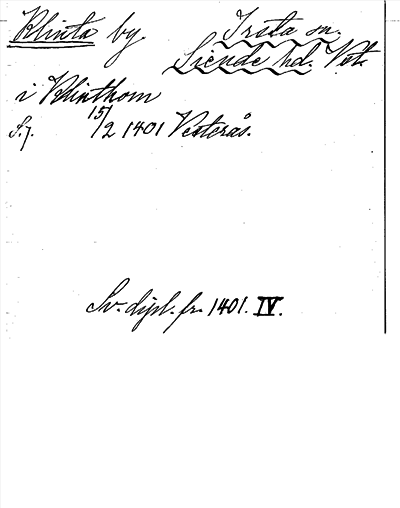 Klinta by. Irsta sn.
Siende hd. Vstm.
i Klinthom
S. 7. 15/2 1401 Vesterås.
Sv. dipl. fr. 1401. IV.